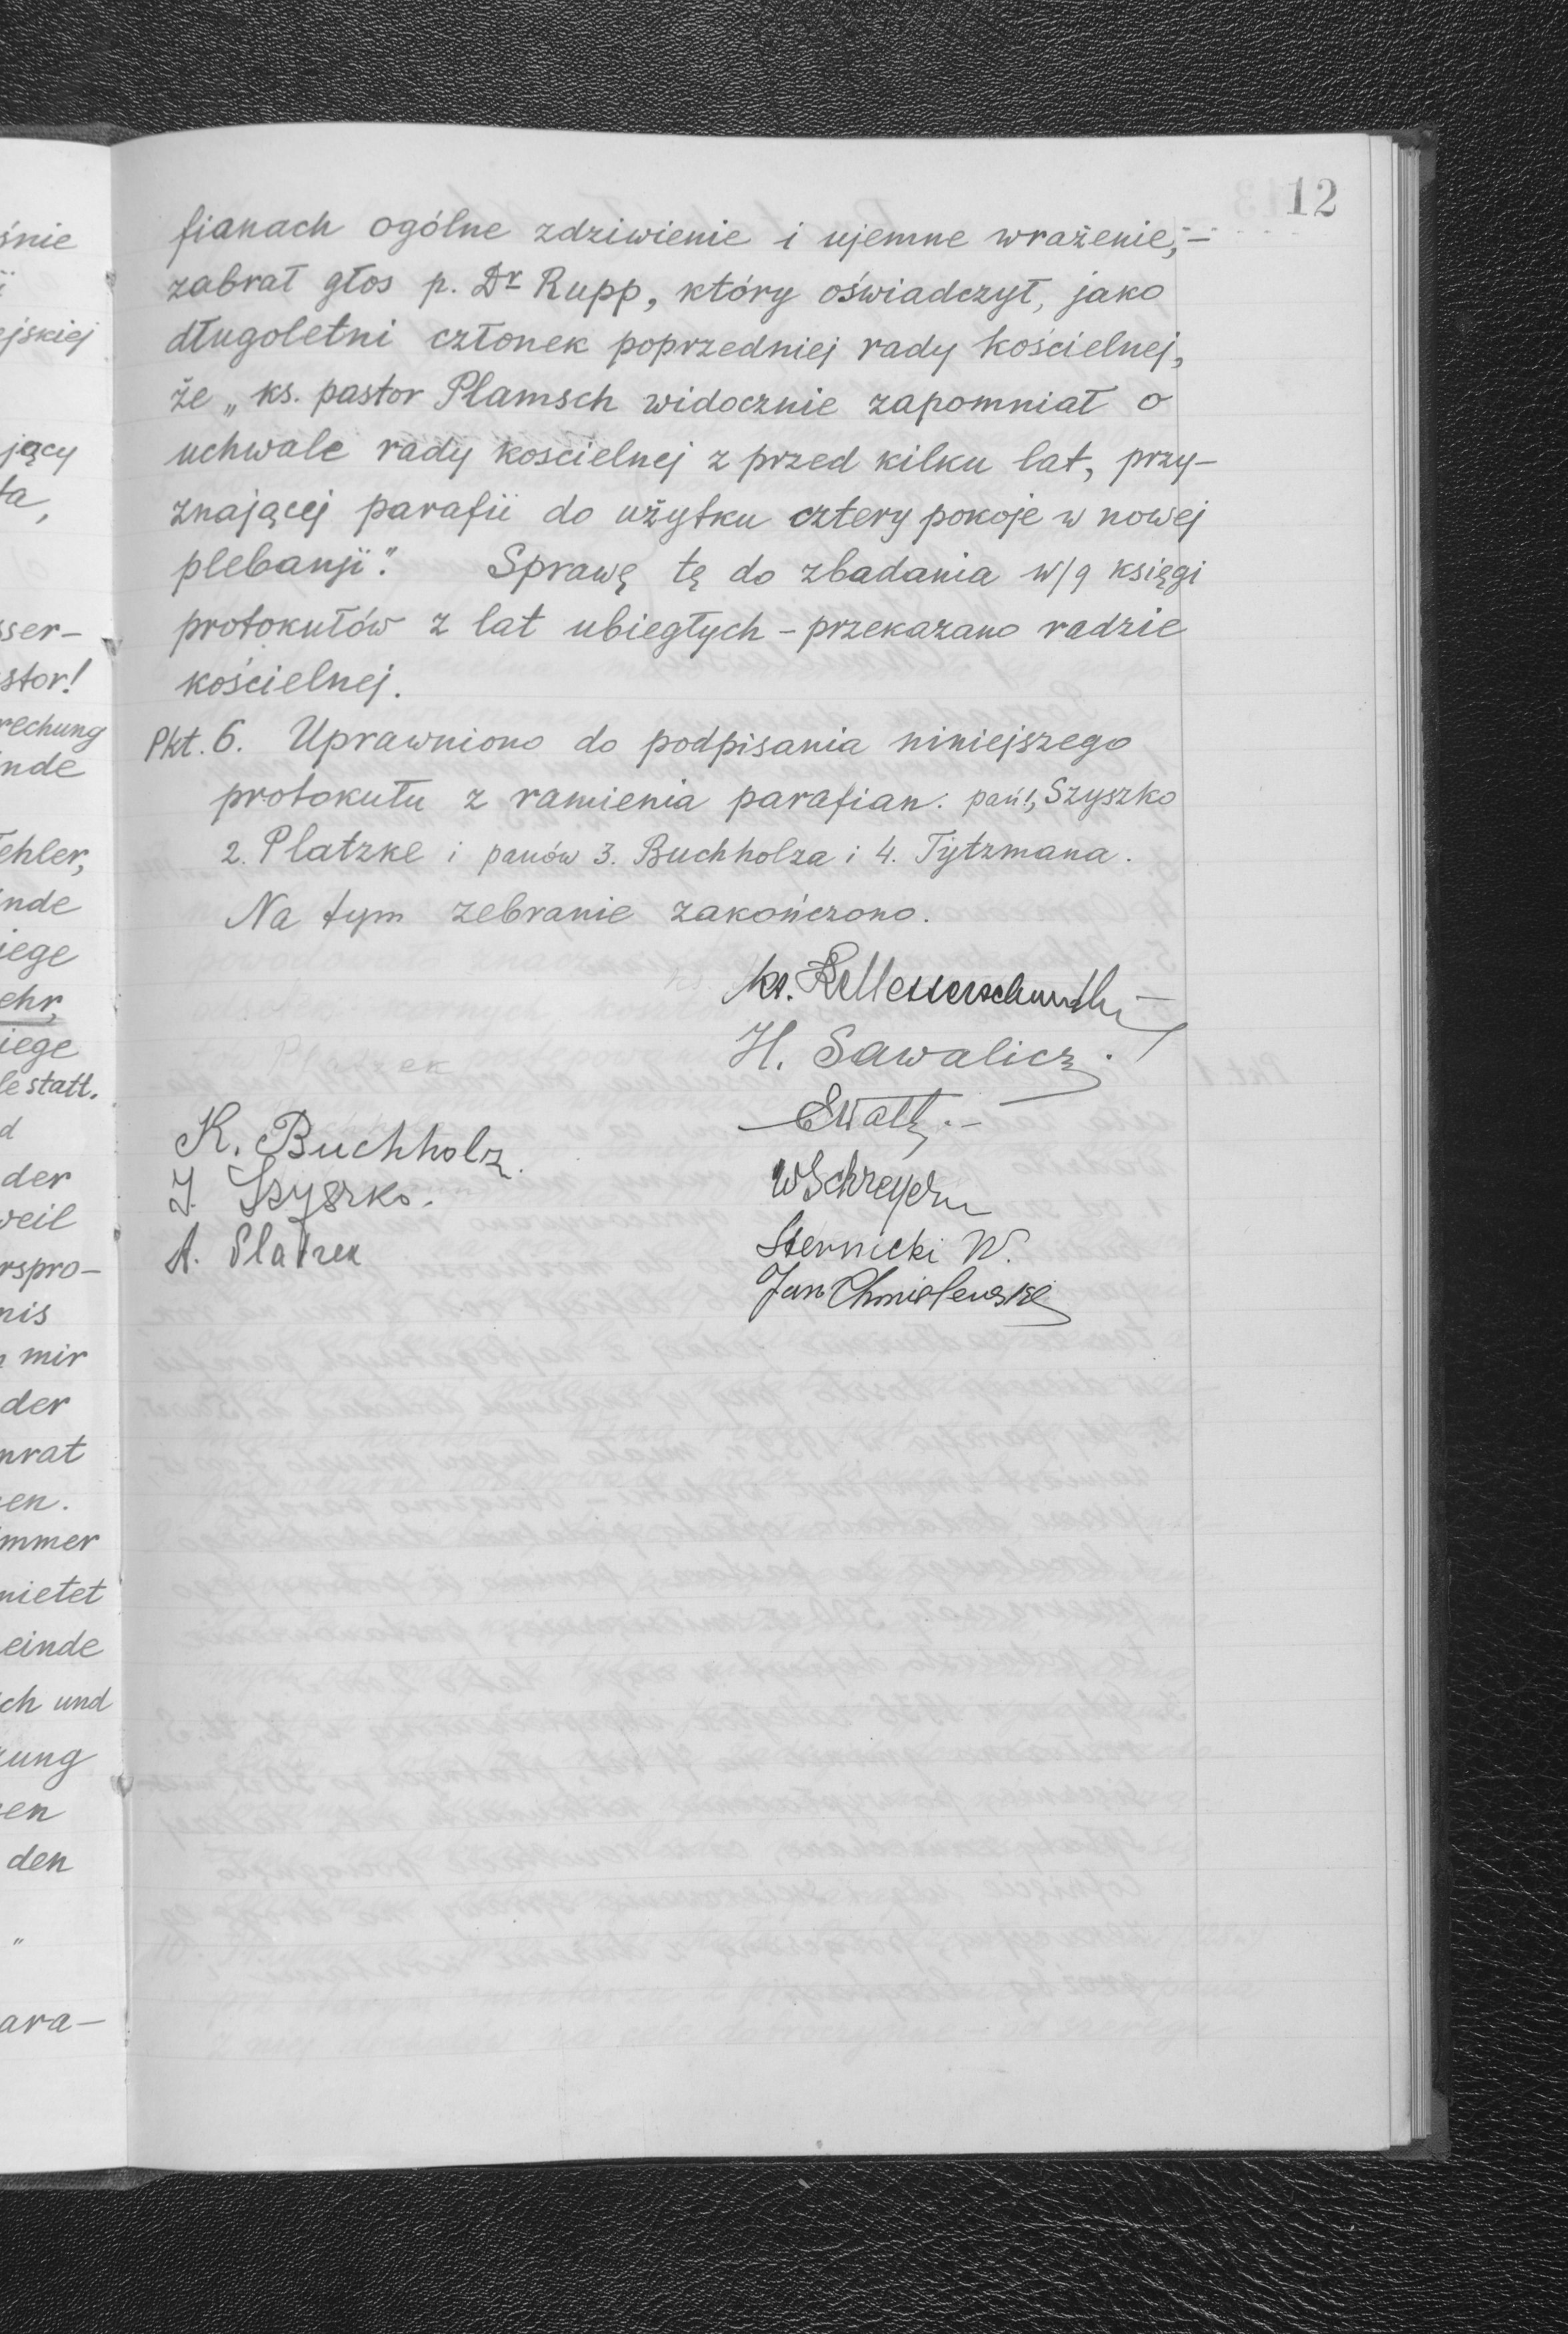 12
fianach ogólne zdziwienie i ujemne wrażenie, –
zabrał głos p. Dr Rupp, który oświadczył, jako
długoletni członek poprzedniej rady kościelnej,
że „ks. pastor Plamsch widocznie zapomniał o
uchwale rady koscielnej z przed kilku lat, przy-
znającej parafii do użytku cztery pokoje w nowej
plebanji". Sprawę tę do zbadania w/g księgi
protokułów z lat ubiegłych – przekazano radzie
kościelnej.
Pkt. 6. Uprawniono do podpisania niniejszego
protokułu z ramienia parafian: pań 1, Szyszko
2. Platzke i panów 3. Buchholza i 4. Tytzmana.
Na tym zebranie zakończono.
ks.
H. Sawalicz.
K. Buchholz.
J. Szyszko.
A. Platzek
WSchreyer
Sternicki W.
Jan Chmielewski
śnie
ejskiej
jący
ta,
sser-
stor!
rechung
nde
ehler,
nde
iege
ehr,
iege
le statt.
d
der
weil
rspro-
nis
mir
der
nrat
en.
immer
mietet
einde
ich und
ung
en
den
"
ara-